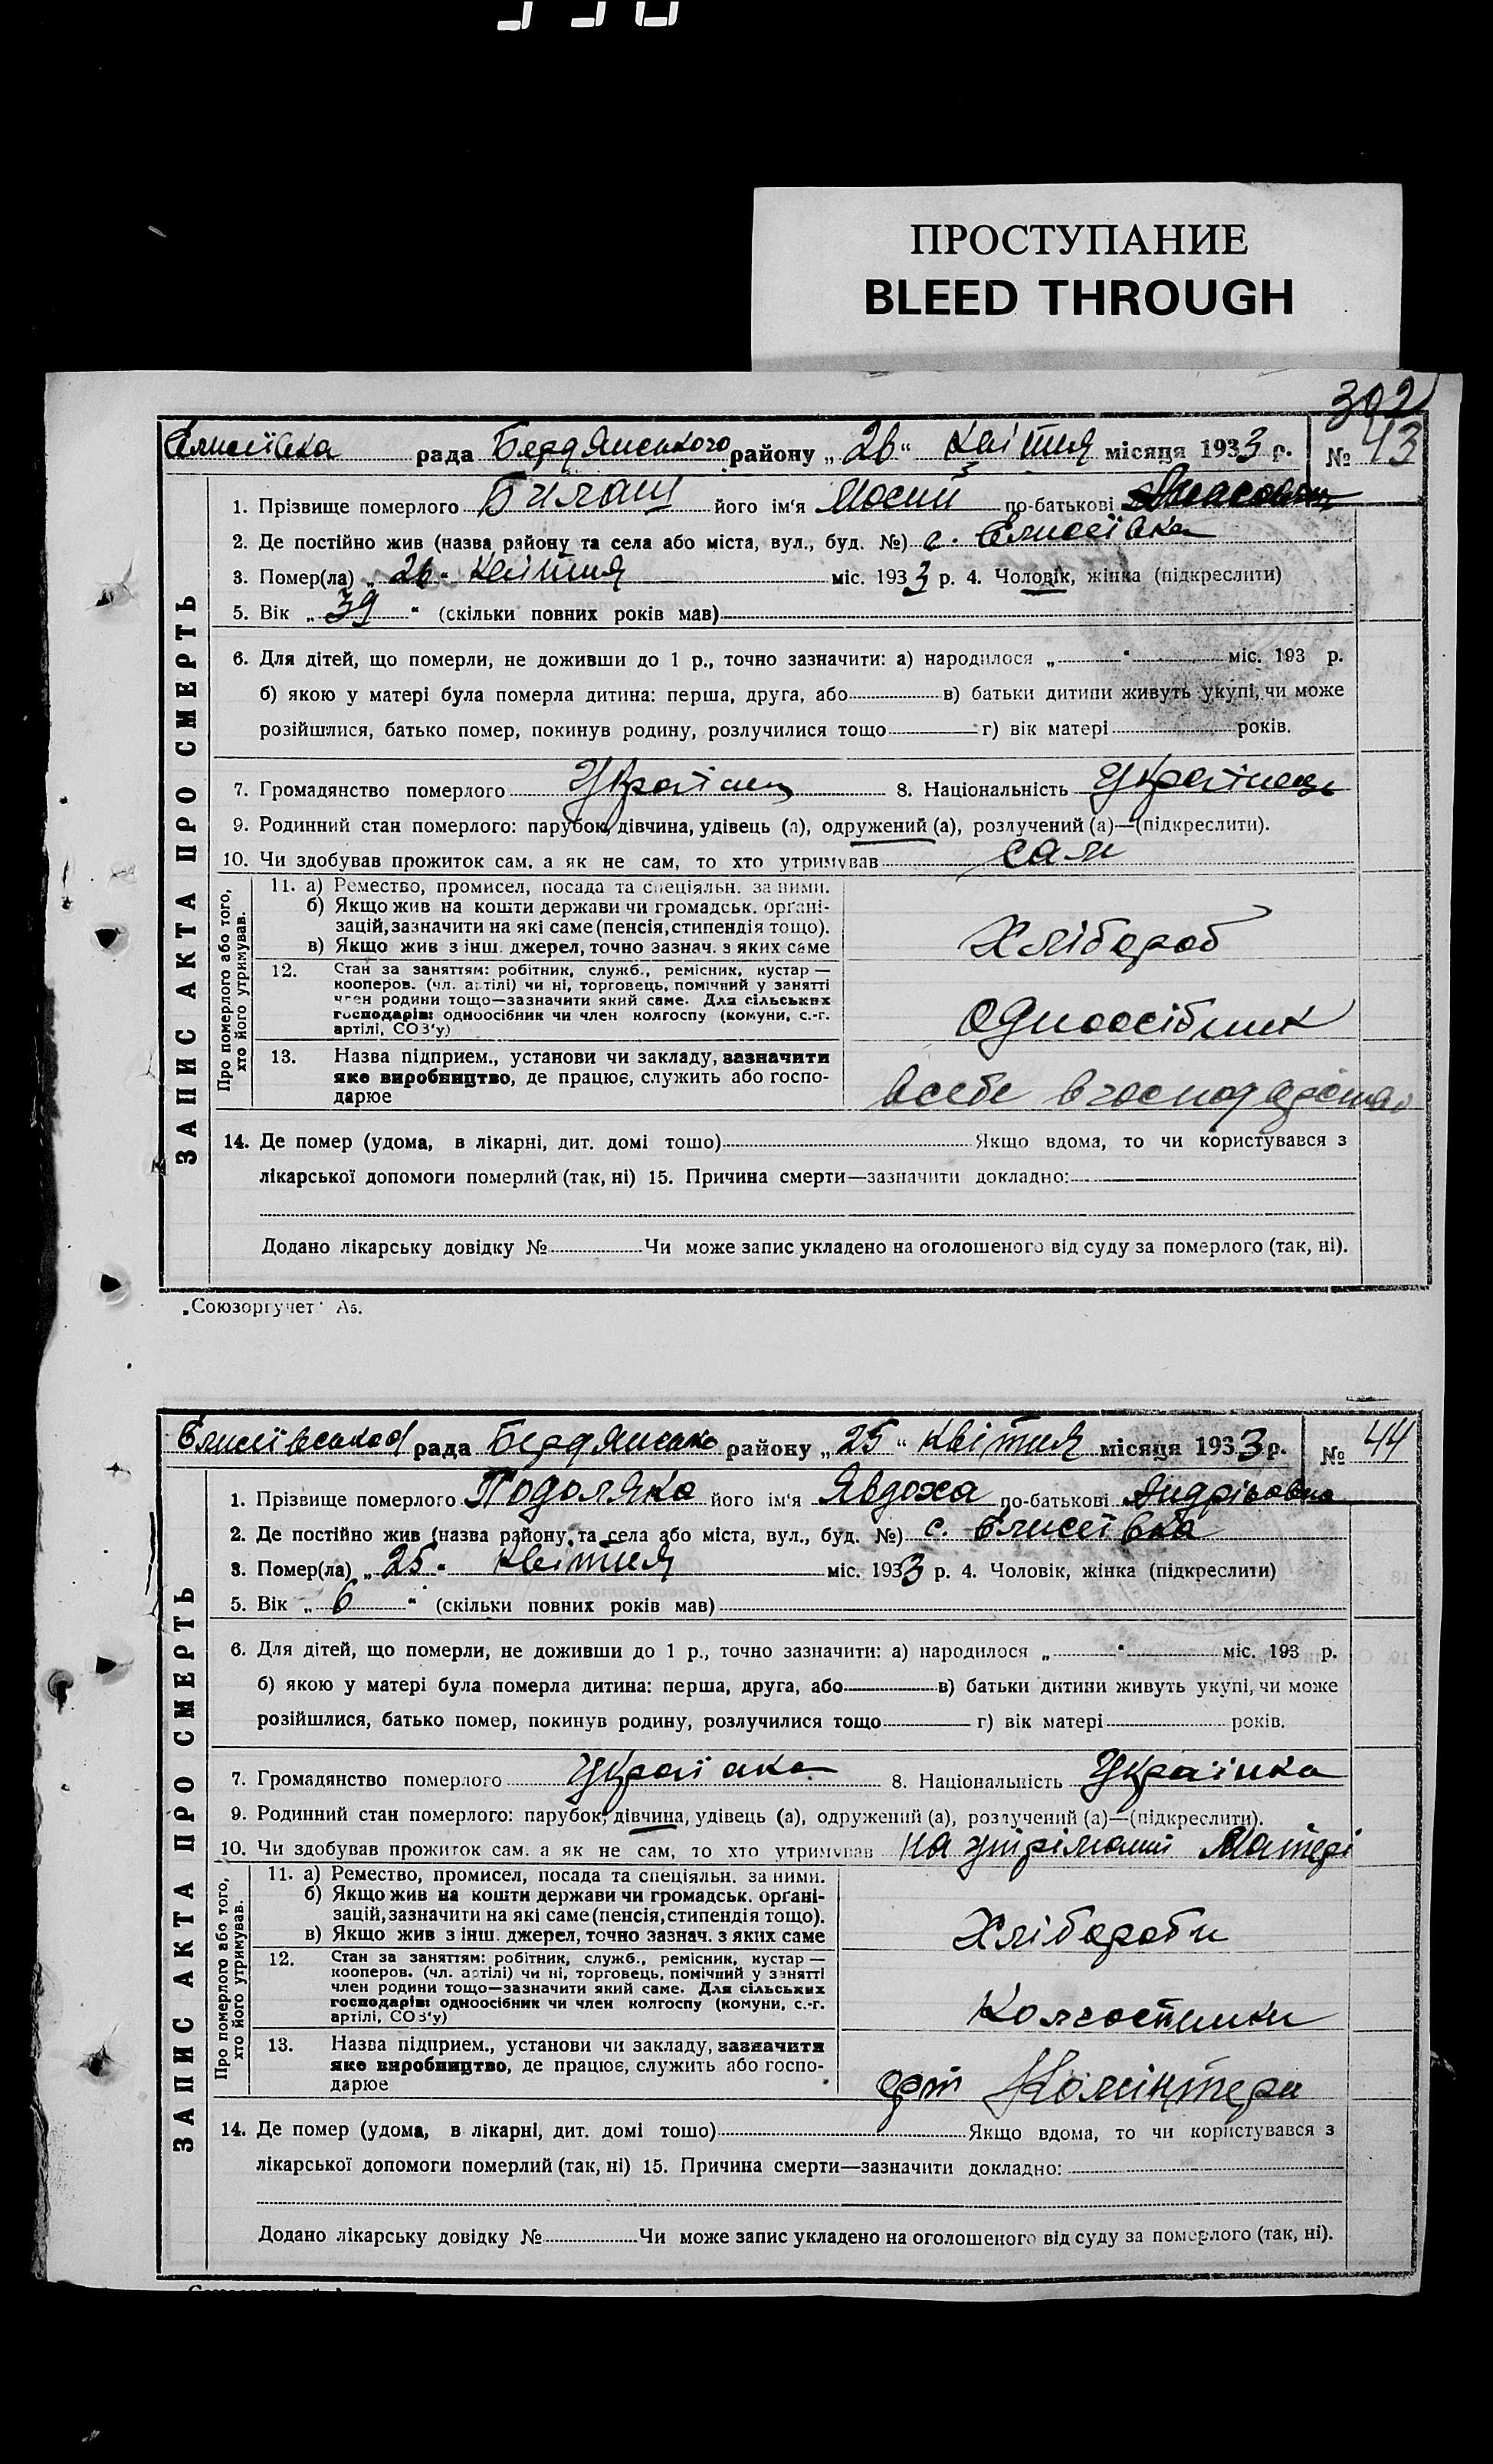 ПРОСТУПАНИЕ
BLEED THROUGH
302
Єлисеївка рада Бердянського району „26“ Квітня місяця 1933 р. № 43
1. Прізвище померлого Билаш його ім'я Мосий по-батькові
2. Де постійно жив (назва району та села або міста, вул., буд. №) с. Єлисеївка
3. Помер(ла) „26“ Квітня міс. 1933 р. 4. Чоловік, жінка (підкреслити)
5. Вік „39“ (скільки повних років мав)
6. Для дітей, що померли, не доживши до 1 р., точно зазначити: а) народилося „ “ міс. 193 р.
б) якою у матері була померла дитина: перша, друга, або в) батьки дитини живуть укупі, чи може
розійшлися, батько помер, покинув родину, розлучилися тощо г) вік матері років.
7. Громадянство померлого Українец 8. Національність Українець
9. Родинний стан померлого: парубок, дівчина, удівець (а), одружений (а), розлучений (а)—(підкреслити).
10. Чи здобував прожиток сам, а як не сам, то хто утримував сам
ЗАПИС АКТА ПРО СМЕРТЬ
Про померлого або того, хто його утримував.
11. а) Ремество, промисел, посада та спеціяльн. за ними.
б) Якщо жив на кошти держави чи громадськ. орґані-
зацій, зазначити на які саме (пенсія, стипендія тощо).
в) Якщо жив з інш. джерел, точно зазнач. з яких саме
Хлібороб
12. Стан за заняттям: робітник, служб., ремісник, кустар —
кооперов. (чл. артілі) чи ні, торговець, помічний у занятті
член родини тощо—зазначити який саме. Для сільських
господарів: одноосібник чи член колгоспу (комуни, с.-г.
артілі, СОЗ'у)
Одноосібник
13. Назва підприєм., установи чи закладу, зазначити
яке виробництво, де працює, служить або госпо-
дарює
всебе в господарстві
14. Де помер (удома, в лікарні, дит. домі тощо) Якщо вдома, то чи користувався з
лікарської допомоги померлий (так, ні) 15. Причина смерти—зазначити докладно:
Додано лікарську довідку № Чи може запис укладено на оголошеного від суду за померлого (так, ні).
„Союзоргучет“ А5.
Єлисеївської рада Бердянсько району „25“ Квітня місяця 1933 р. № 44
1. Прізвище померлого Подоляка його ім'я Явдоха по-батькові Андріьовна
2. Де постійно жив (назва району та села або міста, вул., буд. №) с. Єлисеївка
3. Помер(ла) „25“ Квітня міс. 1933 р. 4. Чоловік, жінка (підкреслити)
5. Вік „6“ (скільки повних років мав)
6. Для дітей, що померли, не доживши до 1 р., точно зазначити: а) народилося „ “ міс. 193 р.
б) якою у матері була померла дитина: перша, друга, або в) батьки дитини живуть укупі, чи може
розійшлися, батько помер, покинув родину, розлучилися тощо г) вік матері років.
7. Громадянство померлого Українка 8. Національність Українка
9. Родинний стан померлого: парубок, дівчина, удівець (а), одружений (а), розлучений (а)—(підкреслити).
10. Чи здобував прожиток сам, а як не сам, то хто утримував на утріманні Матері
ЗАПИС АКТА ПРО СМЕРТЬ
Про померлого або того, хто його утримував.
11. а) Ремество, промисел, посада та спеціяльн. за ними.
б) Якщо жив на кошти держави чи громадськ. орґані-
зацій, зазначити на які саме (пенсія, стипендія тощо).
в) Якщо жив з інш. джерел, точно зазнач. з яких саме
Хлібороби
12. Стан за заняттям: робітник, служб., ремісник, кустар —
кооперов. (чл. артілі) чи ні, торговець, помічний у занятті
член родини тощо—зазначити який саме. Для сільських
господарів: одноосібник чи член колгоспу (комуни, с.-г.
артілі, СОЗ'у)
Колгоспники
13. Назва підприєм., установи чи закладу, зазначити
яке виробництво, де працює, служить або госпо-
дарює
арт Комінтерн
14. Де помер (удома, в лікарні, дит. домі тощо) Якщо вдома, то чи користувався з
лікарської допомоги померлий (так, ні) 15. Причина смерти—зазначити докладно:
Додано лікарську довідку № Чи може запис укладено на оголошеного від суду за померлого (так, ні).